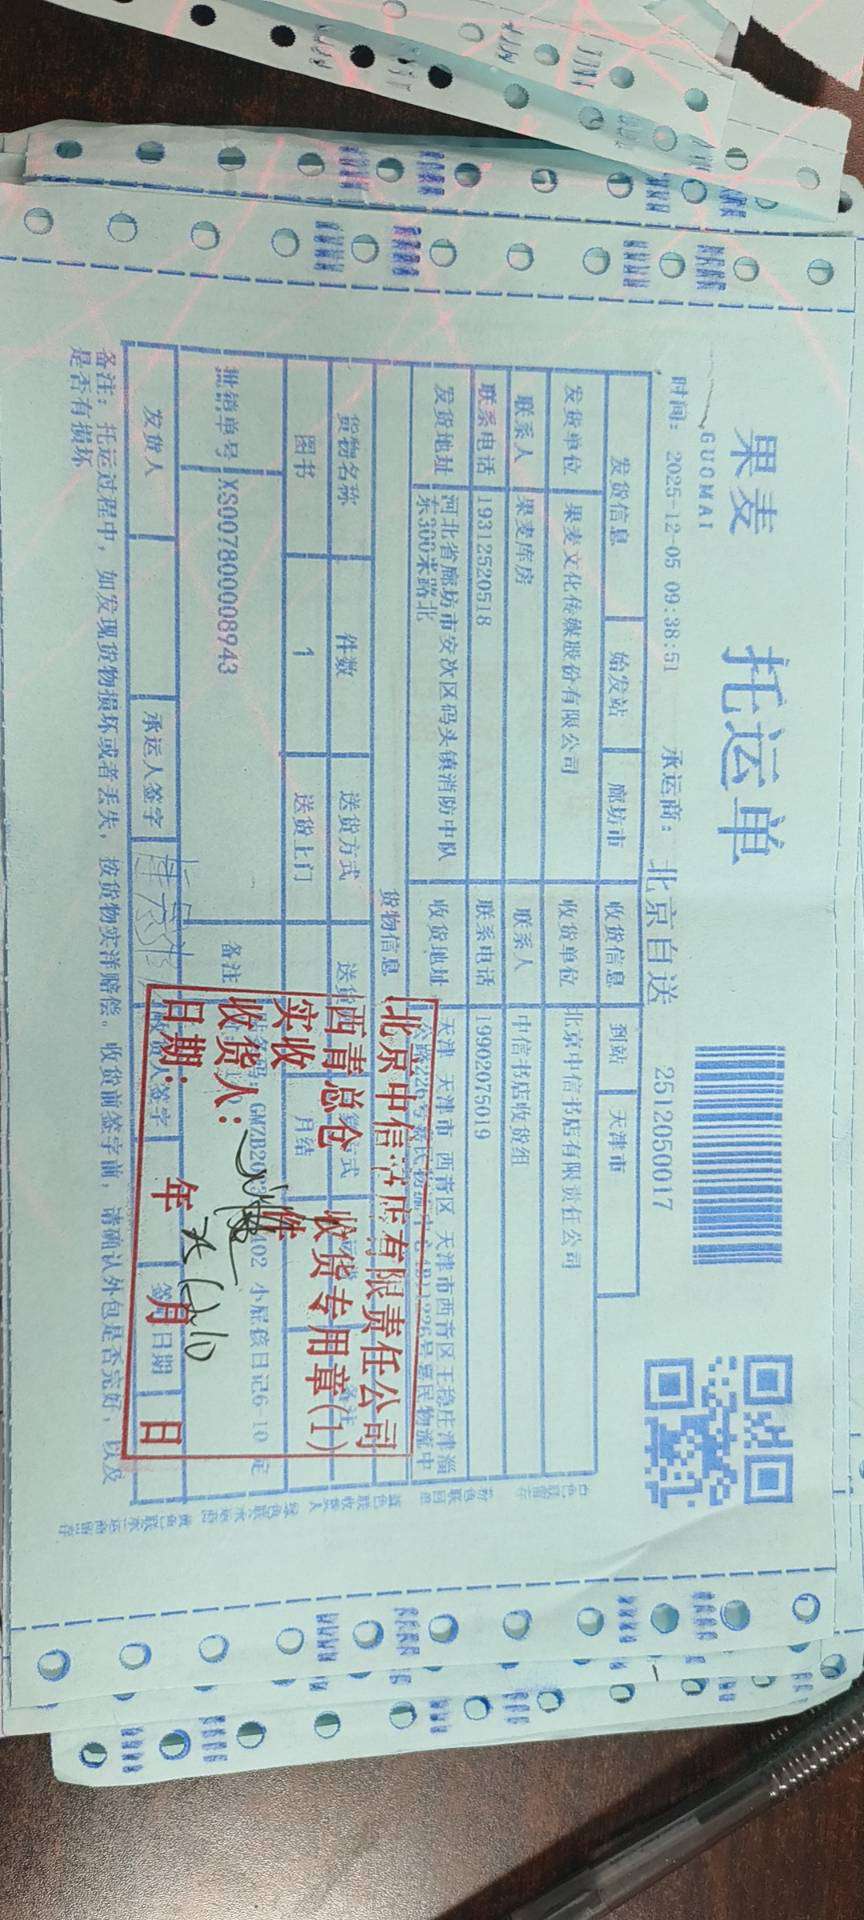 果麦
GUOMAI
托运单
时间: 2025-12-05 09:38:51 承运商: 北京自送 2512050017
发货信息 始发站 廊坊市 收货信息 到站 天津市
发货单位 果麦文化传媒股份有限公司 收货单位 北京中信书店有限责任公司
联系人 果麦库房 联系人 中信书店收货组
联系电话 19312520518 联系电话 19902075019
发货地址 河北省廊坊市安次区码头镇消防中队东300米路北 收货地址 天津 天津市 西青区 天津市西青区王稳庄津淄
货物信息
货物名称 件数 送货方式 备注
图书 1 送货上门 月结
批销单号 XS007800008943 备注 小屁孩日记6-10
发货人 承运人签字 日期
备注: 托运过程中, 如发现货物损坏或者丢失, 按货物实洋赔偿。收货前签字前, 请确认外包是否完好, 以及
是否有损坏
北京中信书店有限责任公司
西青总仓 收货专用章(1)
实收 件
收货人:
日期: 年 月 日